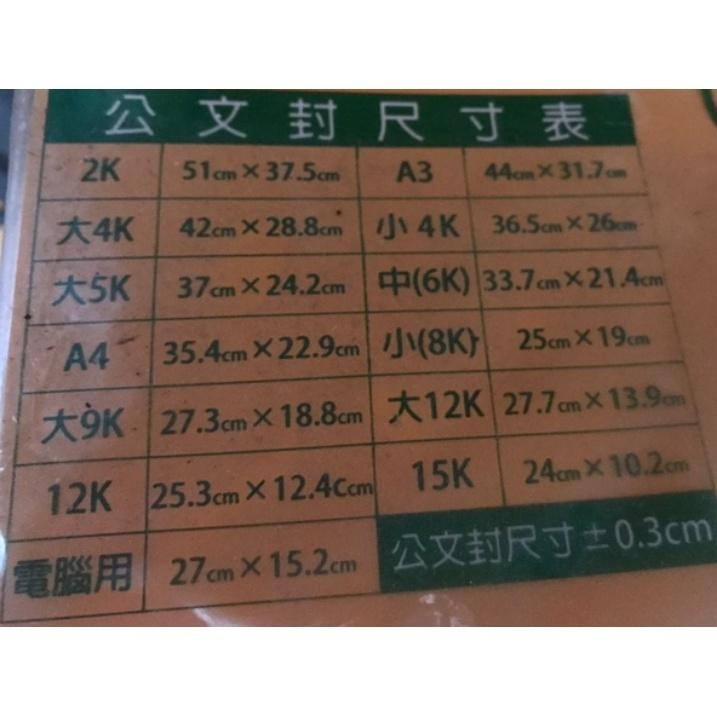 公文封尺寸表
2K 51cm×37.5cm A3 44cm×31.7cm
大4K 42cm×28.8cm 小4K 36.5cm×26cm
大5K 37cm×24.2cm 中(6K) 33.7cm×21.4cm
A4 35.4cm×22.9cm 小(8K) 25cm×19cm
大9K 27.3cm×18.8cm 大12K 27.7cm×13.9cm
12K 25.3cm×12.4Ccm 15K 24cm×10.2cm
電腦用 27cm×15.2cm 公文封尺寸±0.3cm